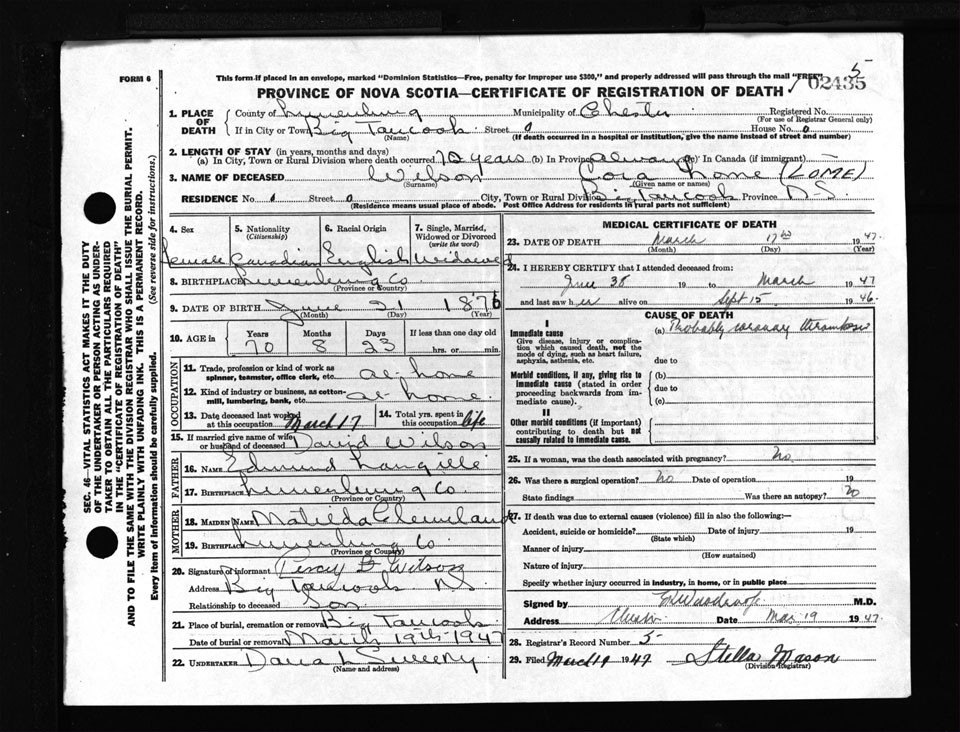 FORM 6
This form if placed in an envelope, marked "Dominion Statistics—Free, penalty for improper use $300," and properly addressed will pass through the mail "FREE"
5
02435
PROVINCE OF NOVA SCOTIA—CERTIFICATE OF REGISTRATION OF DEATH
1. PLACE OF DEATH County of Lunenburg Municipality of Chester Registered No.
(For use of Registrar General only)
If in City or Town Big Tancook Street 0 House No. 0
(Name) (If death occurred in a hospital or institution, give the name instead of street and number)
2. LENGTH OF STAY (in years, months and days)
(a) In City, Town or Rural Division where death occurred 70 years (b) In Province always (c) In Canada (if immigrant)
3. NAME OF DECEASED Wilson Cora Lome (LOME)
(Surname) (Given name or names)
RESIDENCE No. 0 Street 0 City, Town or Rural Division Big Tancook Province N S
(Residence means usual place of abode. Post Office Address for residents in rural parts not sufficient)
4. Sex 5. Nationality (Citizenship) 6. Racial Origin 7. Single, Married, Widowed or Divorced (write the word)
Female Canadian English Widowed
8. BIRTHPLACE Lunenburg Co
(Province or Country)
9. DATE OF BIRTH June 21 1876
(Month) (Day) (Year)
10. AGE in Years Months Days If less than one day old
70 8 23 hrs. or min.
OCCUPATION
11. Trade, profession or kind of work as spinner, teamster, office clerk, etc. at home
12. Kind of industry or business, as cotton-mill, lumbering, bank, etc. at home
13. Date deceased last worked at this occupation March 17 14. Total yrs. spent in this occupation life
15. If married give name of wife or husband of deceased David Wilson
FATHER
16. NAME Edmund Langille
17. BIRTHPLACE Lunenburg Co.
(Province or Country)
MOTHER
18. MAIDEN NAME Matilda Cleveland
19. BIRTHPLACE Lunenburg Co
(Province or Country)
20. Signature of informant Percy D Wilson
Address Big Tancook N S
Relationship to deceased Son
21. Place of burial, cremation or removal Big Tancook
Date of burial or removal March 19th 1947
22. UNDERTAKER Dana L Sweeny
(Name and address)
MEDICAL CERTIFICATE OF DEATH
23. DATE OF DEATH March 17th 1947
(Month) (Day) (Year)
24. I HEREBY CERTIFY that I attended deceased from
June 38 19 to March 1947
and last saw her alive on Sept 15 1946.
CAUSE OF DEATH
I
Immediate cause (a) Probably coronary thrombosis
Give disease, injury or complication which caused death, not the mode of dying, such as heart failure, asphyxia, asthenia, etc.
due to
Morbid conditions, if any, giving rise to immediate cause (stated in order proceeding backwards from immediate cause).
(b)
due to
(c)
II
Other morbid conditions (if important) contributing to death but not causally related to immediate cause.
25. If a woman, was the death associated with pregnancy? No
26. Was there a surgical operation? No Date of operation 19
State findings Was there an autopsy? No
27. If death was due to external causes (violence) fill in also the following:—
Accident, suicide or homicide? Date of injury 19
(State which)
Manner of injury
(How sustained)
Nature of injury
Specify whether injury occurred in industry, in home, or in public place
Signed by M.D.
Address Chester Date Mar 19 1947.
28. Registrar's Record Number 5
29. Filed March 19 1947 Stella Mason
(Division Registrar)
SEC. 46—VITAL STATISTICS ACT MAKES IT THE DUTY
OF THE UNDERTAKER OR PERSON ACTING AS UNDER-
TAKER TO OBTAIN ALL THE PARTICULARS REQUIRED
IN THE "CERTIFICATE OF REGISTRATION OF DEATH"
AND TO FILE THE SAME WITH THE DIVISION REGISTRAR WHO SHALL ISSUE THE BURIAL PERMIT.
WRITE PLAINLY WITH UNFADING INK. THIS IS A PERMANENT RECORD.
Every item of information should be carefully supplied. (See reverse side for instructions.)